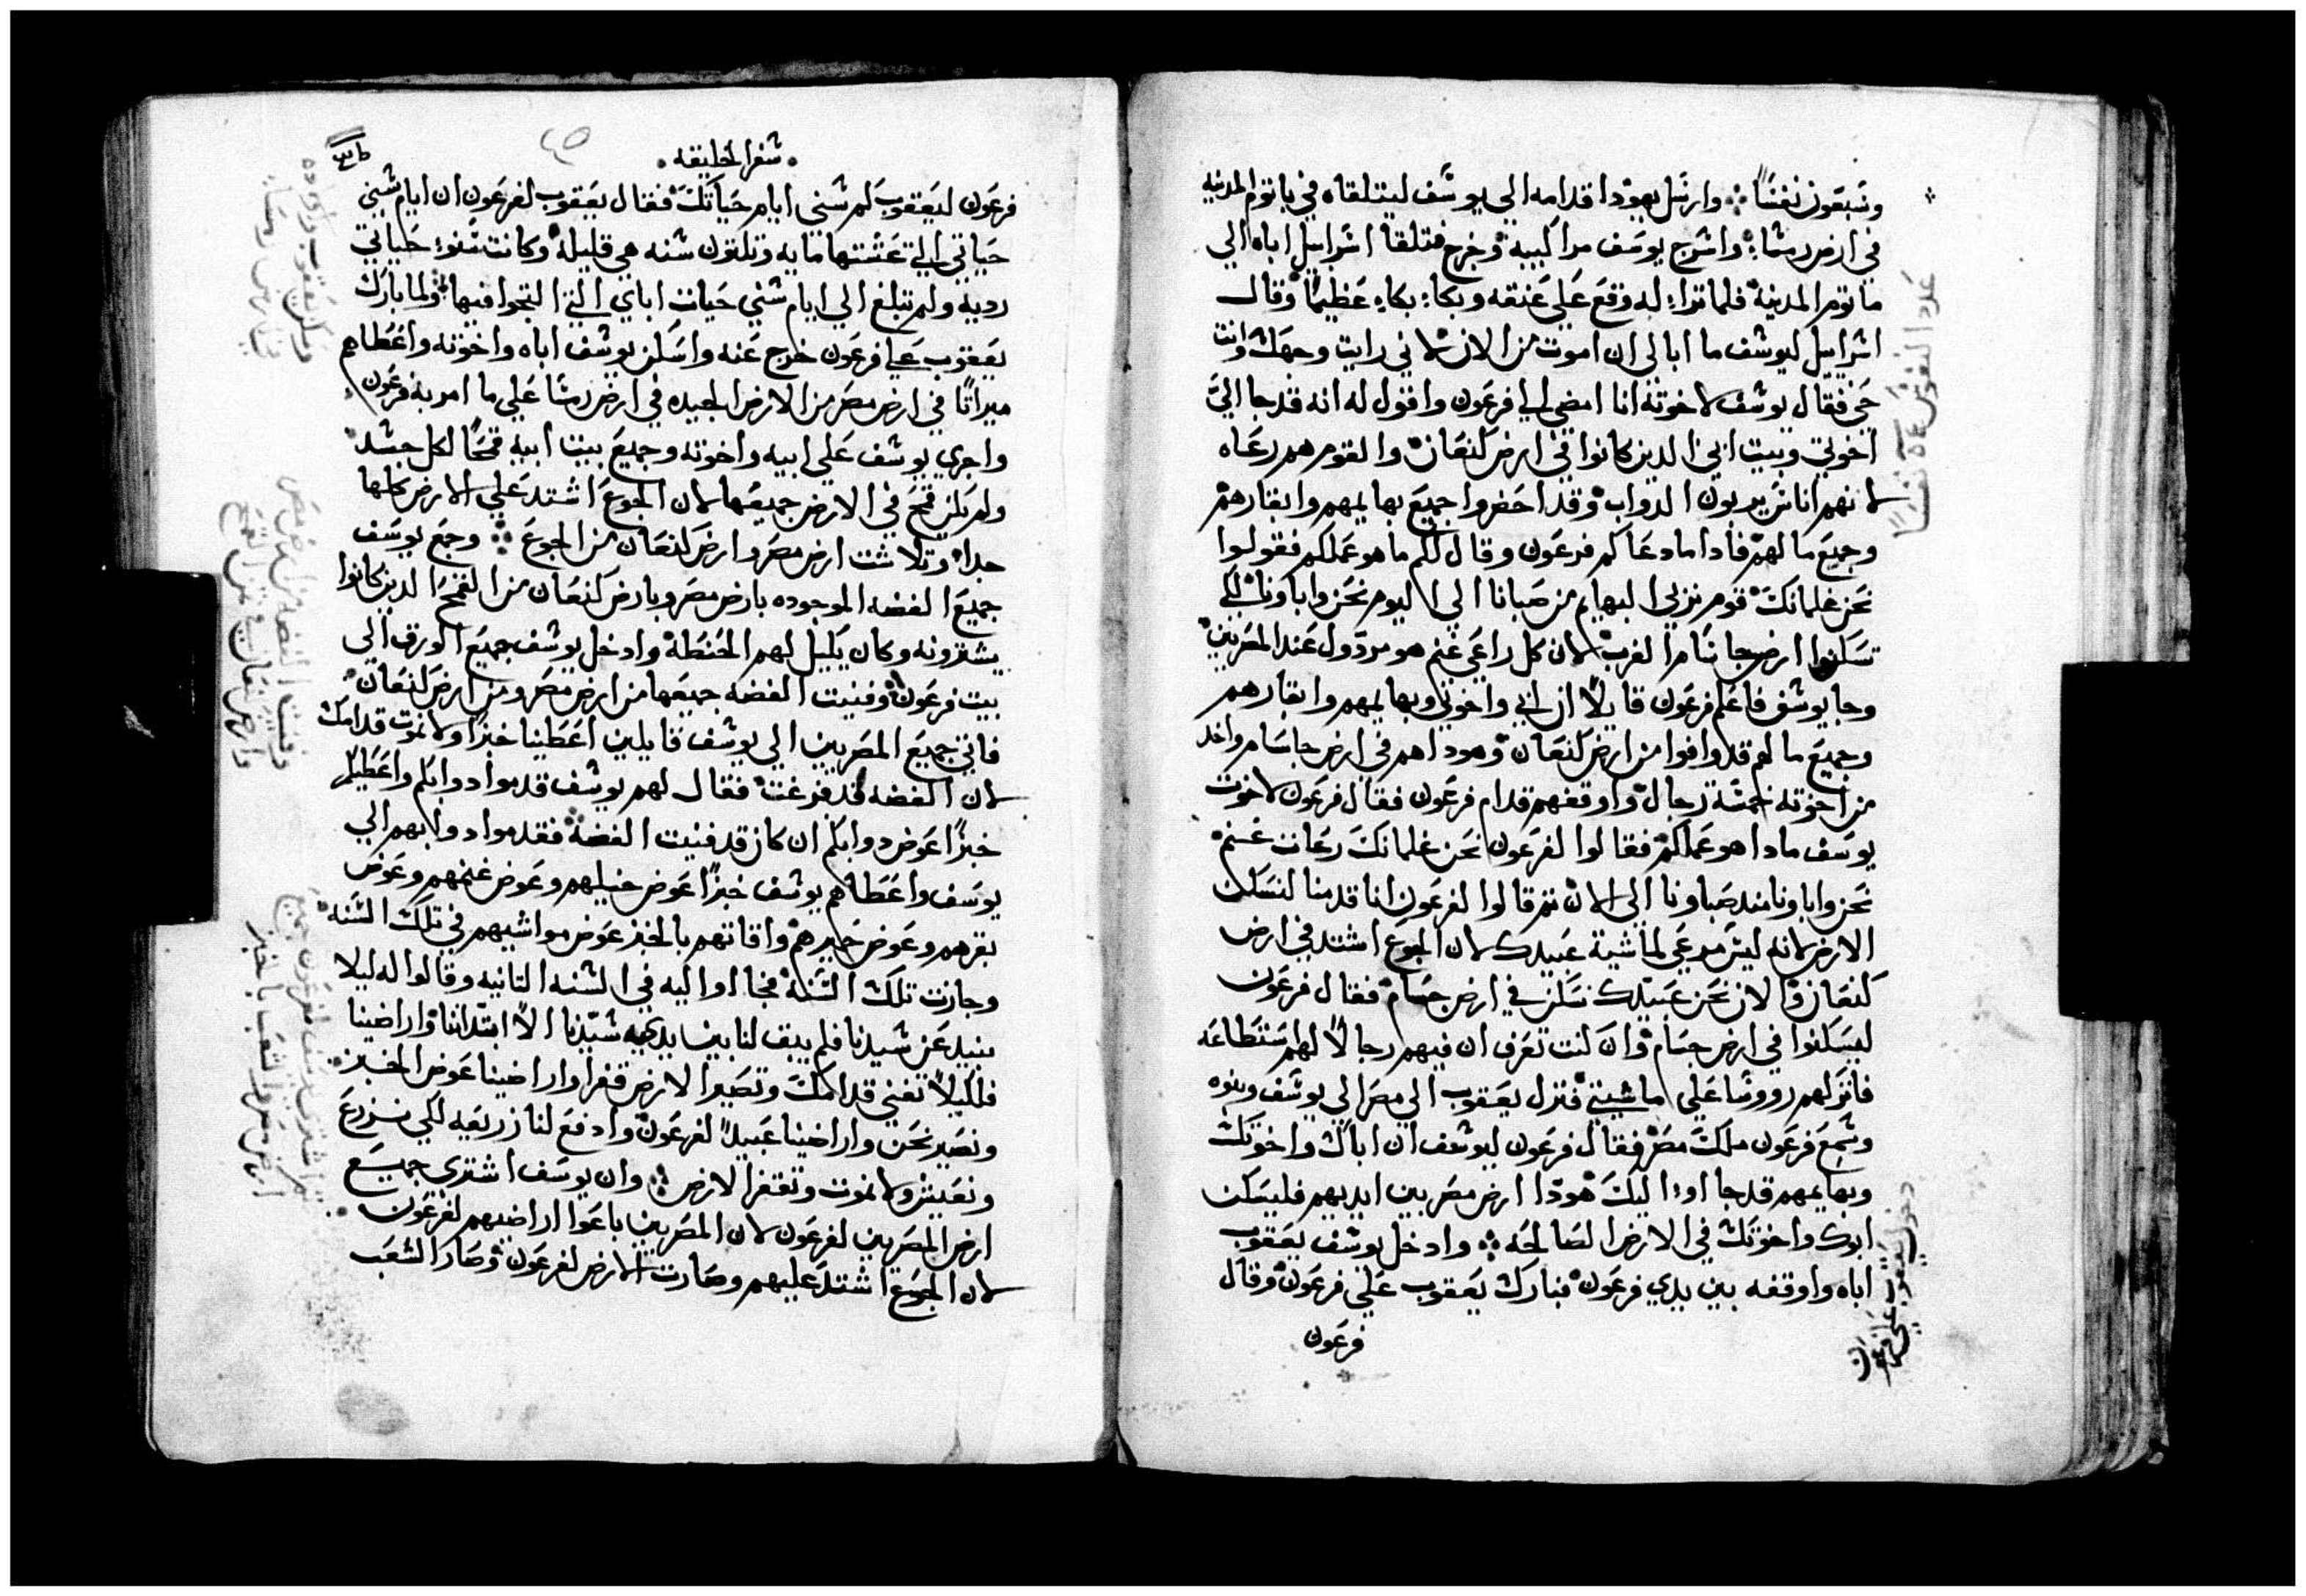 وسبعون نفسًا ⁘ وارسل يهودا قدامه الي يوسف ليتلقاه في ياتوم المدينه
في ارض رمسا ⁘ واسرج يوسف مراكبه وخرج فتلقا اسراييل اباه الي
ماتوم المدينه فلما تراء له وقع علي عنقه وبكاء بكاء عظيمًا وقال
اسراييل ليوسف ما ابالي ان اموت من الان لاني رايت وجهك وانت
حي فقال يوسف لاخوته انا امضي الي فرعون واقول له انه قد جا اليّ
اخوتي وبيت ابي الدين كانوا في ارض كنعان والقوم هم رعاه
لانهم اناس يربون الدواب وقد احضروا جميع بهايمهم وابقارهم
وجميع ما لهم فادا ما دعاكم فرعون وقال لكم ما هو عملكم فقولوا
نحن غلمانك قوم نربي البهايم من صبانا الي اليوم نحن واباونا لكي
تسكنوا ارض جاسام الغرب لان كل راعي غنم هو مردول عند المصريين
وجا يوسف فاعلم فرعون قايلًا ان ابي واخوتي وبهايمهم وابقارهم
وجميع ما لهم قد وافوا من ارض كنعان وهودا هم في ارض جاسام واخد
من اخوته خمسة رجال واوقفهم قدام فرعون فقال فرعون لاخوت
يوسف مادا هو عملكم فقالوا لفرعون نحن غلمانك رعات غنم
نحن واباونا مند صباونا الي الان تم قالوا لفرعون انا قدمنا لنسكن
الارض لانه ليس مرعي لماشية عبيدك لان الجوع اشتد في ارض
كنعان والان نحن عبيدك نسكن في ارض جسام فقال فرعون
ليسكنوا في ارض جسام وان كنت تعرف ان فيهم رجالًا لهم ستطاعه
فانزلهم رووسًا علي ماشيتي فنزل يعقوب الي مصر الي يوسف وبنوه
وسمع فرعون ملك مصر فقال فرعون ليوسف ان اباك واخوتك
وبهايمهم قد جاووا اليك هودا ارض مصر بين ايديهم فليسكن
ابوك واخوتك في الارض الصالحه ⁘ وادخل يوسف يعقوب
اباه واوقفه بين يدي فرعون فبارك يعقوب علي فرعون وقال
فرعون
عدد النفوس نفسًا
دخول يعقوب علي فرعون
سفر الخليقه
فرعون ليعقوب كم سني ايام حياتك فقال يعقوب لفرعون ان ايام سني
حياتي التي عشتها مايه وتلتون سنه هي قليله وكانت سنوا حياتي
رديه ولم تبلغ الي ايام سني حيات اباي التي التجوا فيها ولما بارك
يعقوب علي فرعون خرج عنه واسكن يوسف اباه واخوته واعطاهم
ميراتًا في ارض مصر من الارض الجيده في ارض رمسا علي ما امر به فرعون
واجري يوسف علي ابيه واخوته وجميع بيت ابيه قمحًا لكل جسد
ولم يكن قمح في الارض جميعها لان الجوع اشتد علي الارض كلها
جدًا وتلاشت ارض مصر وارض كنعان من الجوع ⁘ وجمع يوسف
جميع الفضه الموجوده بارض مصر وبارض كنعان من القمح الدين كانوا
يشترونه وكان يكيل لهم الحنطة وادخل يوسف جميع الورق الي
بيت فرعون وفنيت الفضه جميعها من ارض مصر ومن ارض كنعان
فاتي جميع المصريين الي يوسف قايلين اعطينا خبزًا ولا نموت قدامك
لان الفضه قد فرغت فقال لهم يوسف قدموا دوابكم واعطيكم
خبزًا عوض دوابكم ان كان قد فنيت الفضة فقدموا دوابهم الي
يوسف واعطاهم يوسف خبزًا عوض خيلهم وعوض غنمهم وعوض
بقرهم وعوض حميرهم واقاتهم بالخبز عوض مواشيهم في تلك السنه
وجازت تلك السنة فجااوا اليه في السنه التانيه وقالوا له ليلا
نبيد عن سيدنا فلم يبق لنا بين يديه سيدنا الا ابتداننا واراضينا
فلكيلا نفني قدامك وتصير الارض قفرا واراضينا عوض الخبز
ونصير نحن واراضينا عبيدًا لفرعون وادفع لنا زريعه لكي نزرع
ونعيش ولا نموت وتقتفر الارض ⁘ وان يوسف اشتري جميع
ارض المصريين لفرعون لان المصريين باعوا اراضيهم لفرعون
لان الجوع اشتد عليهم وصارت الارض لفرعون وصار الشعب